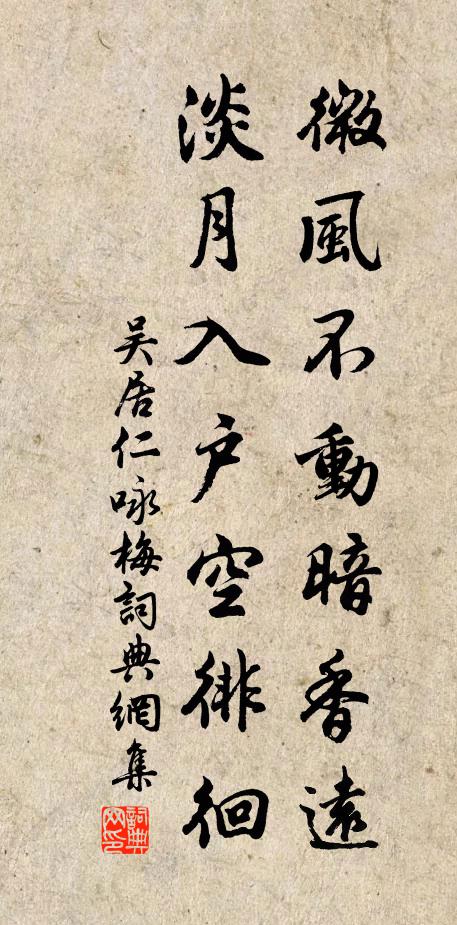 微風不動暗香遠
淡月入戶空徘徊
吴居仁咏梅詞典網集
詞典網印